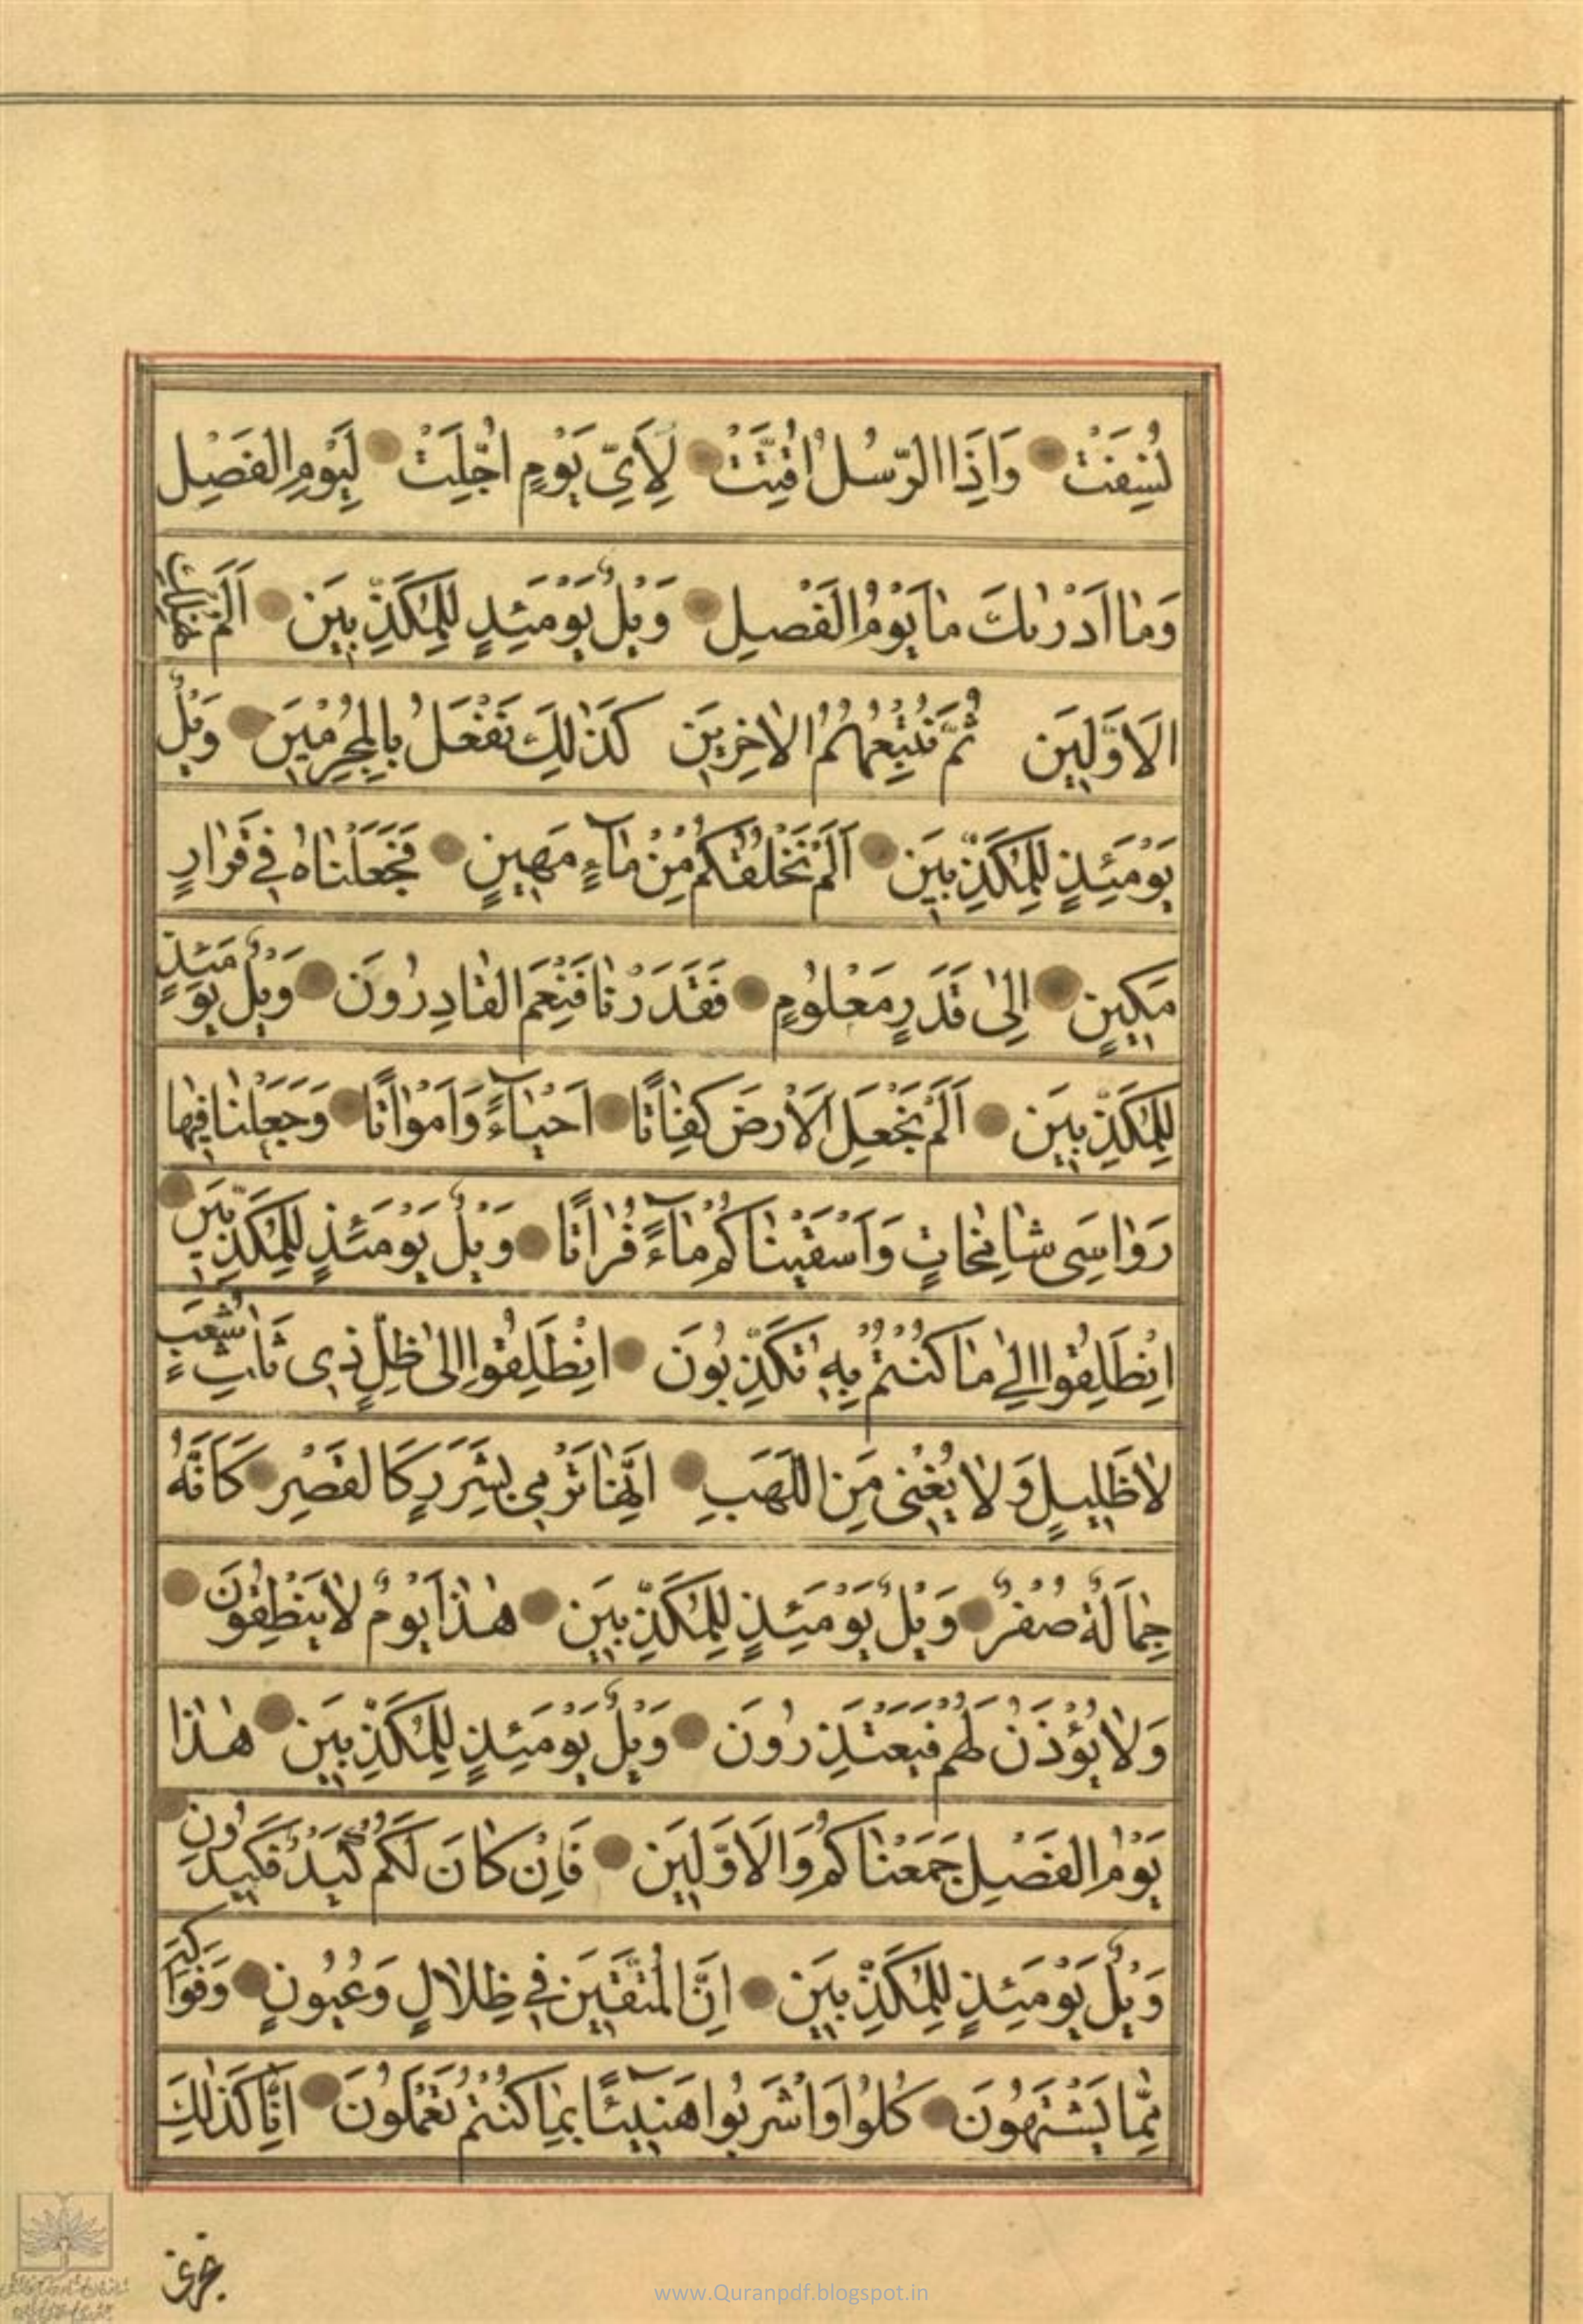 نُسِفَتْ وَاِذَا الرُّسُلُ اُقِّتَتْ لِاَيِّ يَوْمٍ اُجِّلَتْ لِيَوْمِ الْفَصْلِ
وَمٰا اَدْرٰىكَ مٰا يَوْمُ الْفَصْلِ وَيْلٌ يَوْمَئِذٍ لِلْمُكَذِّبِينَ اَلَمْ نُهْلِكِ
الْاَوَّلِينَ ثُمَّ نُتْبِعُهُمُ الْاٰخِرِينَ كَذٰلِكَ نَفْعَلُ بِالْمُجْرِمِينَ وَيْلٌ
يَوْمَئِذٍ لِلْمُكَذِّبِينَ اَلَمْ نَخْلُقْكُمْ مِنْ مٰآءٍ مَهِينٍ فَجَعَلْنٰاهُ فِي قَرٰارٍ
مَكِينٍ اِلىٰ قَدَرٍ مَعْلُومٍ فَقَدَرْنٰا فَنِعْمَ الْقٰادِرُونَ وَيْلٌ يَوْمَئِذٍ
لِلْمُكَذِّبِينَ اَلَمْ نَجْعَلِ الْاَرْضَ كِفٰاتًا اَحْيٰآءً وَاَمْوٰاتًا وَجَعَلْنٰا فِيهٰا
رَوٰاسِيَ شٰامِخٰاتٍ وَاَسْقَيْنٰاكُمْ مٰآءً فُرٰاتًا وَيْلٌ يَوْمَئِذٍ لِلْمُكَذِّبِينَ
اِنْطَلِقُوا اِلىٰ مٰا كُنْتُمْ بِهِ تُكَذِّبُونَ اِنْطَلِقُوا اِلىٰ ظِلٍّ ذِي ثَلٰثِ شُعَبٍ
لاٰ ظَلِيلٍ وَلاٰ يُغْنِي مِنَ اللَّهَبِ اِنَّهٰا تَرْمِي بِشَرَرٍ كَالْقَصْرِ كَاَنَّهُ
جِمٰالَةٌ صُفْرٌ وَيْلٌ يَوْمَئِذٍ لِلْمُكَذِّبِينَ هٰذٰا يَوْمُ لاٰ يَنْطِقُونَ
وَلاٰ يُؤْذَنُ لَهُمْ فَيَعْتَذِرُونَ وَيْلٌ يَوْمَئِذٍ لِلْمُكَذِّبِينَ هٰذٰا
يَوْمُ الْفَصْلِ جَمَعْنٰاكُمْ وَالْاَوَّلِينَ فَاِنْ كٰانَ لَكُمْ كَيْدٌ فَكِيدُونِ
وَيْلٌ يَوْمَئِذٍ لِلْمُكَذِّبِينَ اِنَّ الْمُتَّقِينَ فِي ظِلاٰلٍ وَعُيُونٍ وَفَوٰاكِهَ
مِمّٰا يَشْتَهُونَ كُلُوا وَاشْرَبُوا هَنِيٓئًا بِمٰا كُنْتُمْ تَعْمَلُونَ اِنّٰا كَذٰلِكَ
www.Quranpdf.blogspot.in